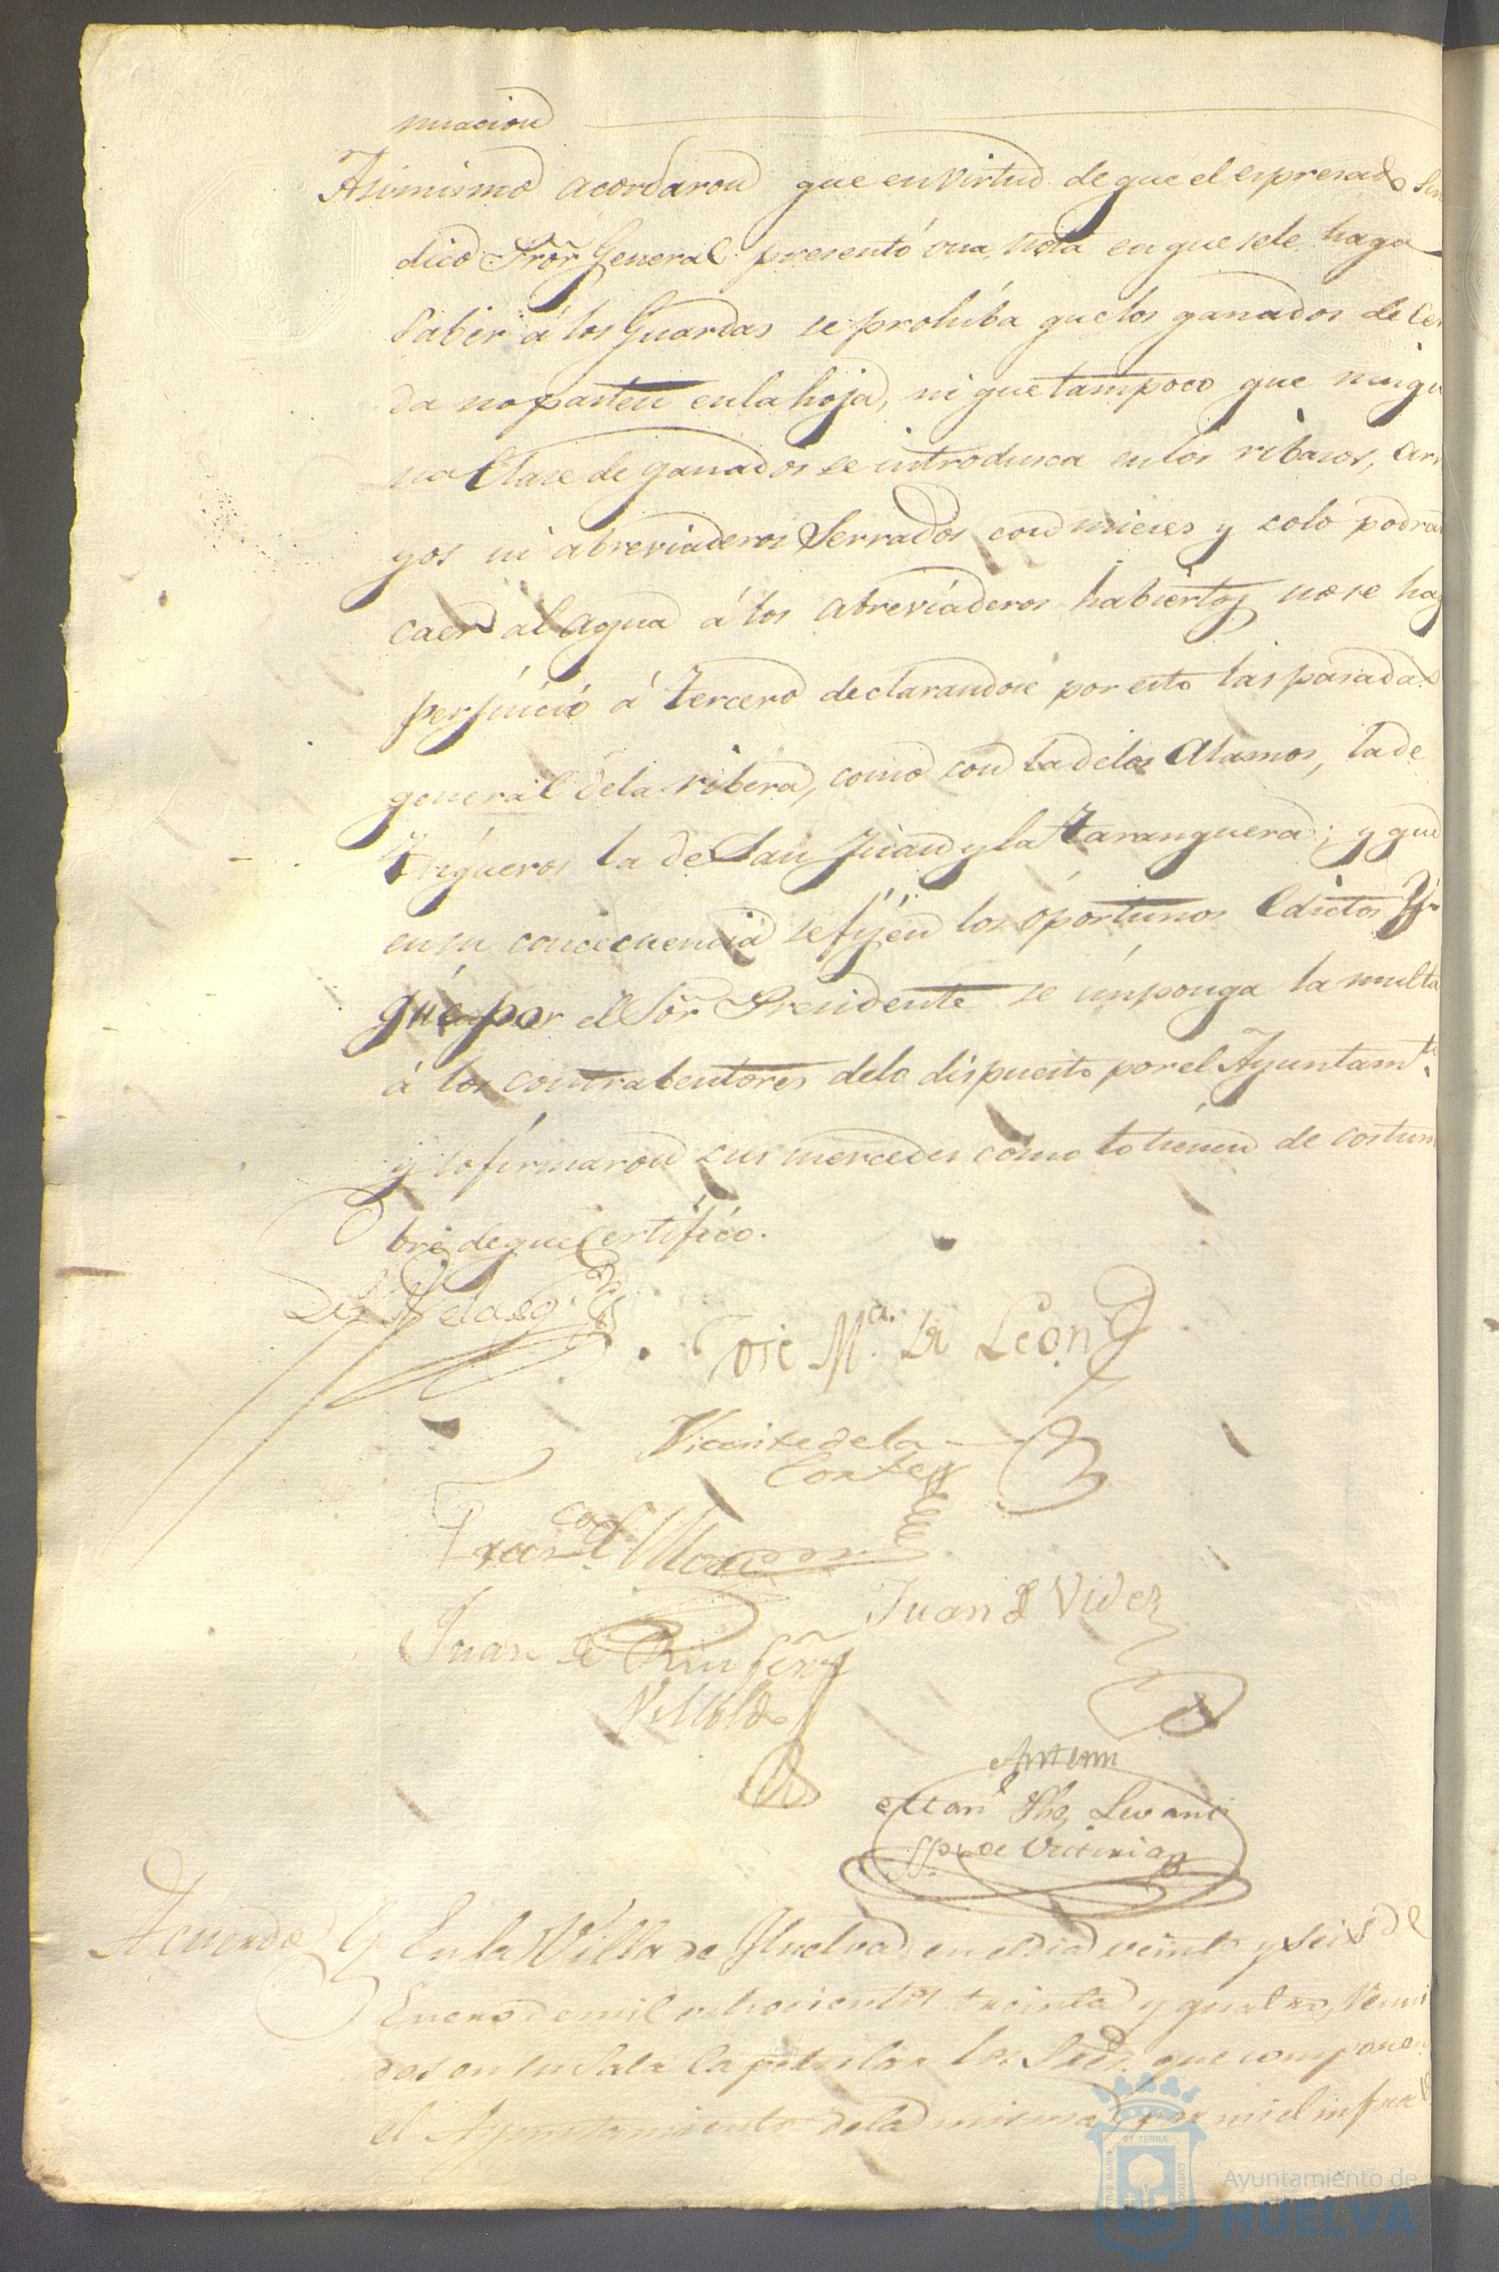 nuacion
Asimismo acordaron que en virtud de que el espresado Sin
dico Pror General presentó una nota en que se le haga
saber á los Guardas se prohiba que los ganados de Cer
da no pasten en la hoja, ni que tampoco que ningu
na Clase de ganados se introdusca en los ribasos, arr
yos ni abreviaderos Serrados con mieses y solo podran
caer al agua á los abreviaderos habiertos no se hag
perjuicio á tercero declarandose por esto las pasadas
general de la ribera, como son la de los Alamos, la de
Trigueros la de San Juan y la Taranguera; y que
en su concecuencia se fijen los oportunos Edictos Y
que por el Sor Presidente se imponga la multa
á los contrabentores de lo dispuesto por el Ayuntamto.
y lo firmaron sus mercedes como lo tienen de costum
bre de que Certifico.
Velasco
José Ma. de León
Vicente de la
Corte
Franco.
Juan de Videz
Juan de
Villolda
Antemi
Manl.
Acuerdo En la Villa de Huelva en el dia veinte y seis de
Enero de mil ochocientos treinta y quatro, Reuni
dos en su Sala Capitular los Sres. que componen
el Ayuntamiento de la misma, por mi el infrac
ET TERRÆ
PORTUS MARIS
CUSTODIA
Ayuntamiento de
HUELVA